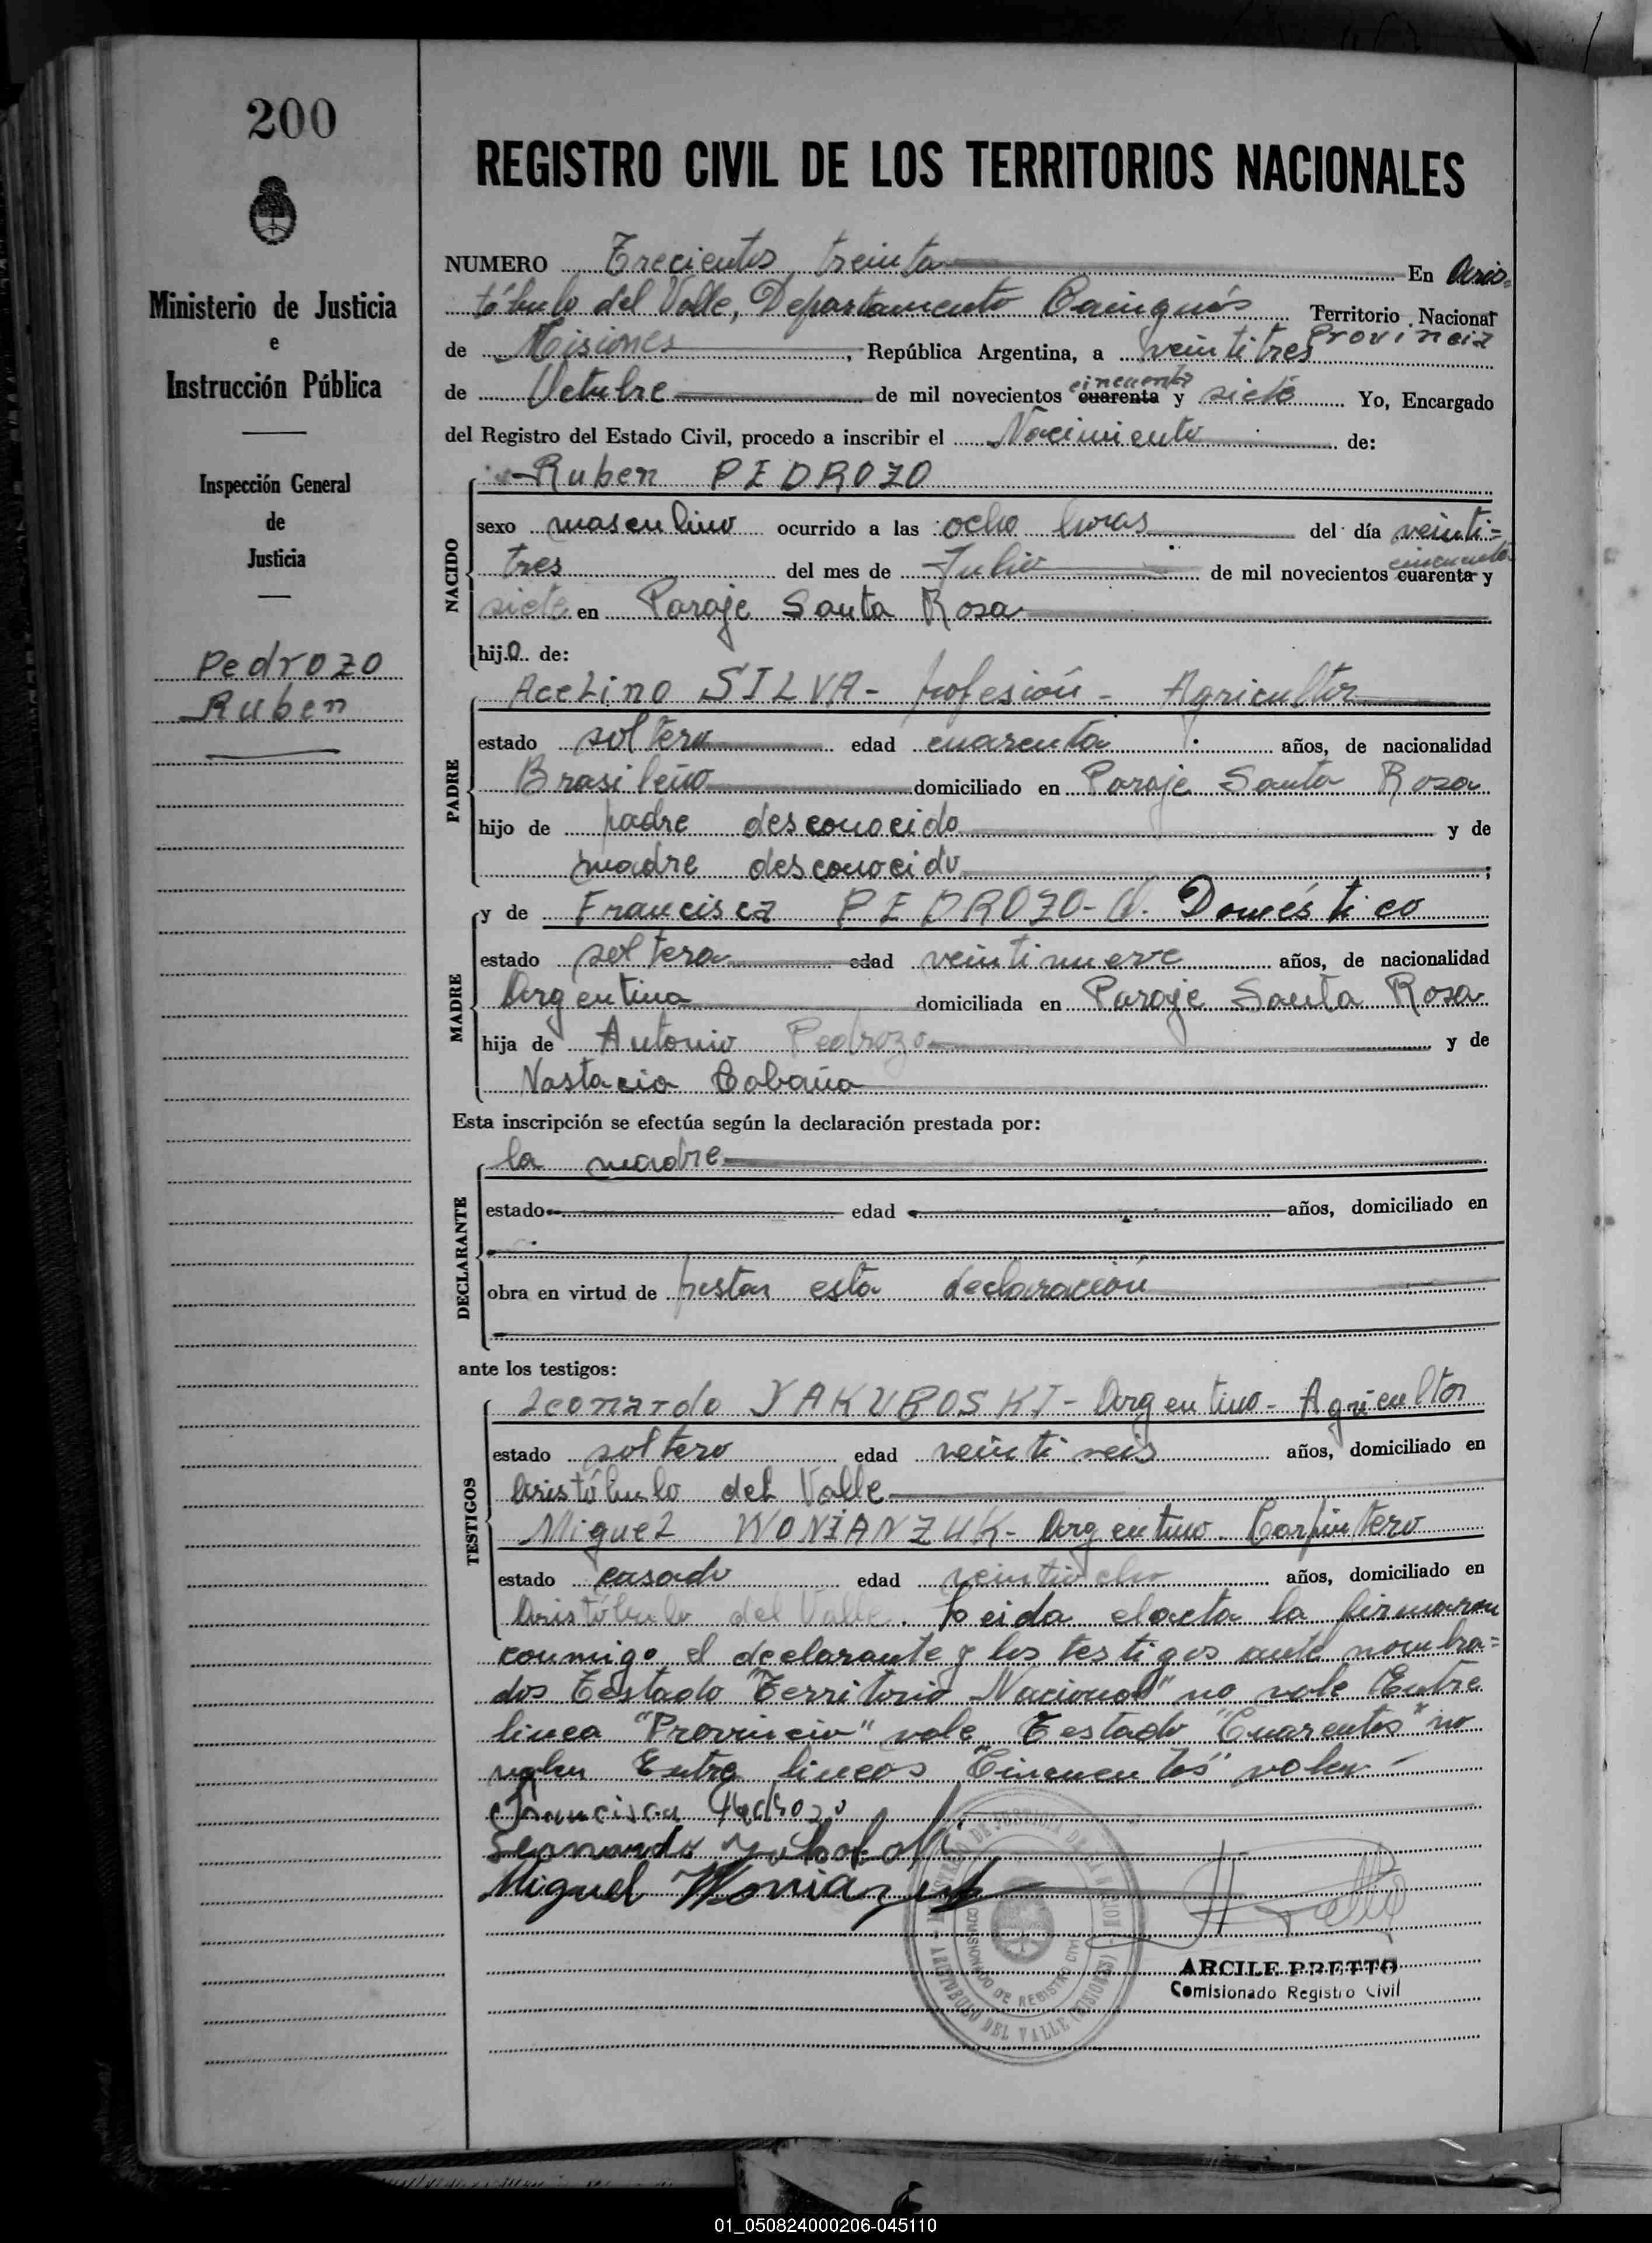 200
Ministerio de Justicia
e
Instrucción Pública
Inspección General
de
Justicia
Pedrozo
Ruben
REGISTRO CIVIL DE LOS TERRITORIOS NACIONALES
NUMERO Trecientos treinta En Aris=
tóbulo del Valle, Departamento Cainguás Territorio Nacional
Provincia
de Misiones, República Argentina, a veintitres
de Octubre de mil novecientos cuarenta cincuenta y siete Yo, Encargado
del Registro del Estado Civil, procedo a inscribir el Nacimiento de:
NACIDO
Ruben PEDROZO
sexo masculino ocurrido a las ocho horas del día veinti=
tres del mes de Julio de mil novecientos cuarenta cincuenta y
siete en Paraje Santa Rosa
hijo de:
PADRE
Acelino SILVA - profesión - Agricultor
estado soltero edad cuarenta años, de nacionalidad
Brasileño domiciliado en Paraje Santa Rosa
hijo de padre desconocido y de
madre desconocido;
MADRE
y de Francisca PEDROZO- Doméstico
estado soltera edad veintinueve años, de nacionalidad
Argentina domiciliada en Paraje Santa Rosa
hija de Antonio Pedrozo y de
Nastacia Cabaña
Esta inscripción se efectúa según la declaración prestada por:
DECLARANTE
la madre
estado edad años, domiciliado en
obra en virtud de prestar esta declaración
ante los testigos:
TESTIGOS
Leonardo YAKUBOSKI - Argentino - Agricultor
estado soltero edad veintiseis años, domiciliado en
Aristóbulo del Valle
Miguel WONIANZUK - Argentino - Carpintero
estado casado edad veintiocho años, domiciliado en
Aristóbulo del Valle. Leida el acta la firmaron
conmigo el declarante y los testigos ante nombra=
dos Testado "Territorio Nacional" no vale Entre
linea "Provincia" vale Testado "Cuarentas" no
valen Entre lineas "Cincuentas" valen
Francisca Pedrozo
Miguel Wonianzuk
ARISTOBULO DEL VALLE (MISIONES)
COMISIONADO DE REGISTRO CIVIL
ARCILE PRETTO
Comisionado Registro Civil
01_050824000206-045110